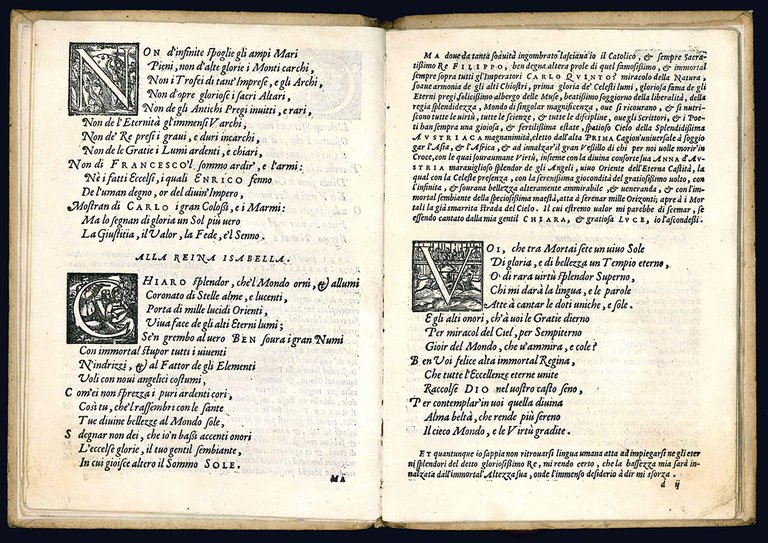 NON d'infinite spoglie gli ampi Mari
Pieni, non d'alte glorie i Monti carchi,
Non i Trofei di tant'Imprese, e gli Archi,
Non d'opre gloriose i sacri Altari,
Non de gli Antichi Pregi inuitti, e rari,
Non de l'Eternità gl'immensi Varchi,
Non de' Re presi i graui, e duri incarchi,
Non de le Gratie i Lumi ardenti, e chiari,
Non di FRANCESCO'l sommo ardir, e l'armi:
Nè i fatti Eccelsi, i quali ENRICO fenno
De l'uman degno, or del diuin'Impero,
Mostran di CARLO i gran Colossi, e i Marmi:
Ma lo segnan di gloria un Sol più uero
La Giustitia, il Valor, la Fede, e'l Senno.
ALLA REINA ISABELLA.
CHIARO splendor, che'l Mondo orni, & allumi
Coronato di Stelle alme, e lucenti,
Porta di mille lucidi Orienti,
Viua face de gli alti Eterni lumi;
Se'n grembo al uero BEN soura i gran Numi
Con immortal stupor tutti i uiuenti
N'indrizzi, & al Fattor de gli Elementi
Voli con noui angelici costumi,
Com'ei non sprezza i puri ardenti cori,
Così tu, che'l rassembri con le sante
Tue diuine bellezze al Mondo sole,
Sdegnar non dei, che io'n bassi accenti onori
L'eccelse glorie, il tuo gentil sembiante,
In cui gioisce altero il Sommo SOLE.
MA
MA doue da tanta soauità ingombrato lasciaua io il Catolico, & sempre Sacra-
tissimo Re FILIPPO, ben degna altera prole di quel famosissimo, & immortal
sempre sopra tutti gl'Imperatori CARLO QVINTO? miracolo della Natura,
soaue armonia de gli alti Chiostri, prima gloria de' Celesti lumi, gloriosa fama de gli
Eterni pregi, felicissimo albergo delle Muse, beatissimo soggiorno della liberalità, della
regia splendidezza, Mondo di singolar magnificenza, oue si ricourano, & si nutri-
scono tutte le uirtù, tutte le scienze, & tutte le discipline, oue gli Scrittori, & i Poe-
ti han sempre una gioiosa, & fertilissima estate, spatioso Cielo della Splendidissima
AVSTRIACA magnanimità, eletto dall'alta PRIMA Cagion'uniuersale à soggio
gar l'Asia, & l'Africa, & ad innalzar il gran Vesillo di chi per noi uolle morir'in
Croce, con le quai souraumane Virtù, insieme con la diuina consorte sua ANNA d'AV
STRIA marauiglioso splendor de gli Angeli, uiuo Oriente dell'Eterna Castità, la
qual con la Celeste presenza, con la serenissima giocondità del gratiosissimo uolto, con
l'infinita, & sourana bellezza alteramente ammirabile, & ueneranda, & con l'im-
mortal sembiante della speciosissima maestà, atta à serenar mille Orizonti, apre à i Mor
tali la già smarrita strada del Cielo. Il cui estremo ualor mi parebbe di scemar, se
essendo cantato dalla mia gentil CHIARA, & gratiosa LVCE, io l'ascondessi.
VOI, che tra Mortai sete un uiuo Sole
Di gloria, e di bellezza un Tempio eterno,
O di rara uirtù splendor Superno,
Chi mi darà la lingua, e le parole
Atte à cantar le doti uniche, e sole.
E gli alti onori, ch'à uoi le Gratie dierno
Per miracol del Ciel, per Sempiterno
Gioir del Mondo, che u'ammira, e cole?
Ben Voi felice alta immortal Regina,
Che tutte l'Eccellenze eterne unite
Raccolse DIO nel uostro casto seno,
Per contemplar'in uoi quella diuina
Alma beltà, che rende più sereno
Il cieco Mondo, e le Virtù gradite.
ET quantunque io sappia non ritrouarsi lingua umana atta ad impiegarsi ne gli eter
ni splendori del detto gloriosissimo Re, mi rendo certo, che la bassezza mia sarà in-
nalzata dall'immortal Altezza sua, onde l'immenso desiderio à dir mi sforza.
d ij